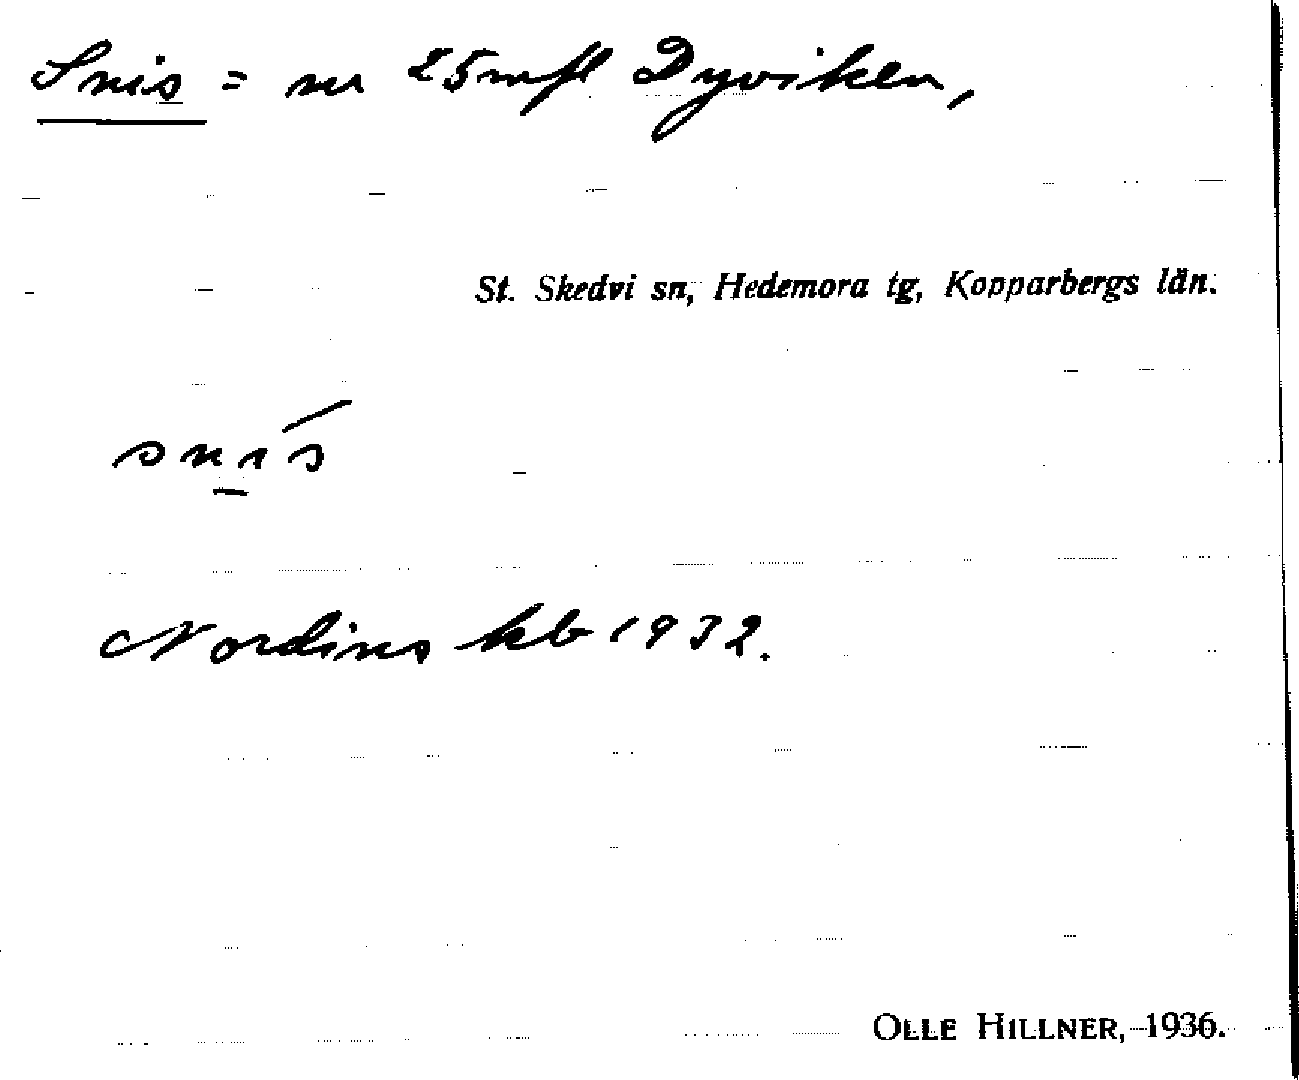 Snis = nr 25 mfl Dyviken,
St. Skedvi sn, Hedemora tg, Kopparbergs län.
snı̠́s
Nordins kb 1932.
OLLE HILLNER, 1936.